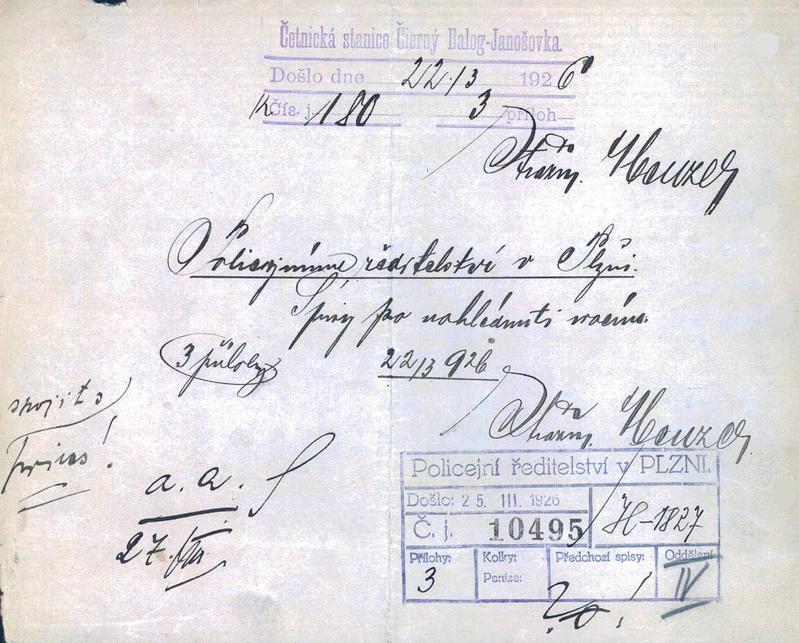 Četnická stanice Čierný Balog-Janošovka.
Došlo dne 22./3 1926
K Čís. j. 180 3 příloh
Houzer
Policejnímu ředitelství v Plzni.
Spisy po nahlédnutí vracím.
3 přílohy 22/3 926
Houzer
spojit s
a. a.
27./III.
Policejní ředitelství v PLZNI.
Došlo: 25. III. 1926
Č. j. 10495 H-1827
Přílohy: Kolky: Předchozí spisy: Oddělení
3 Peníze: IV